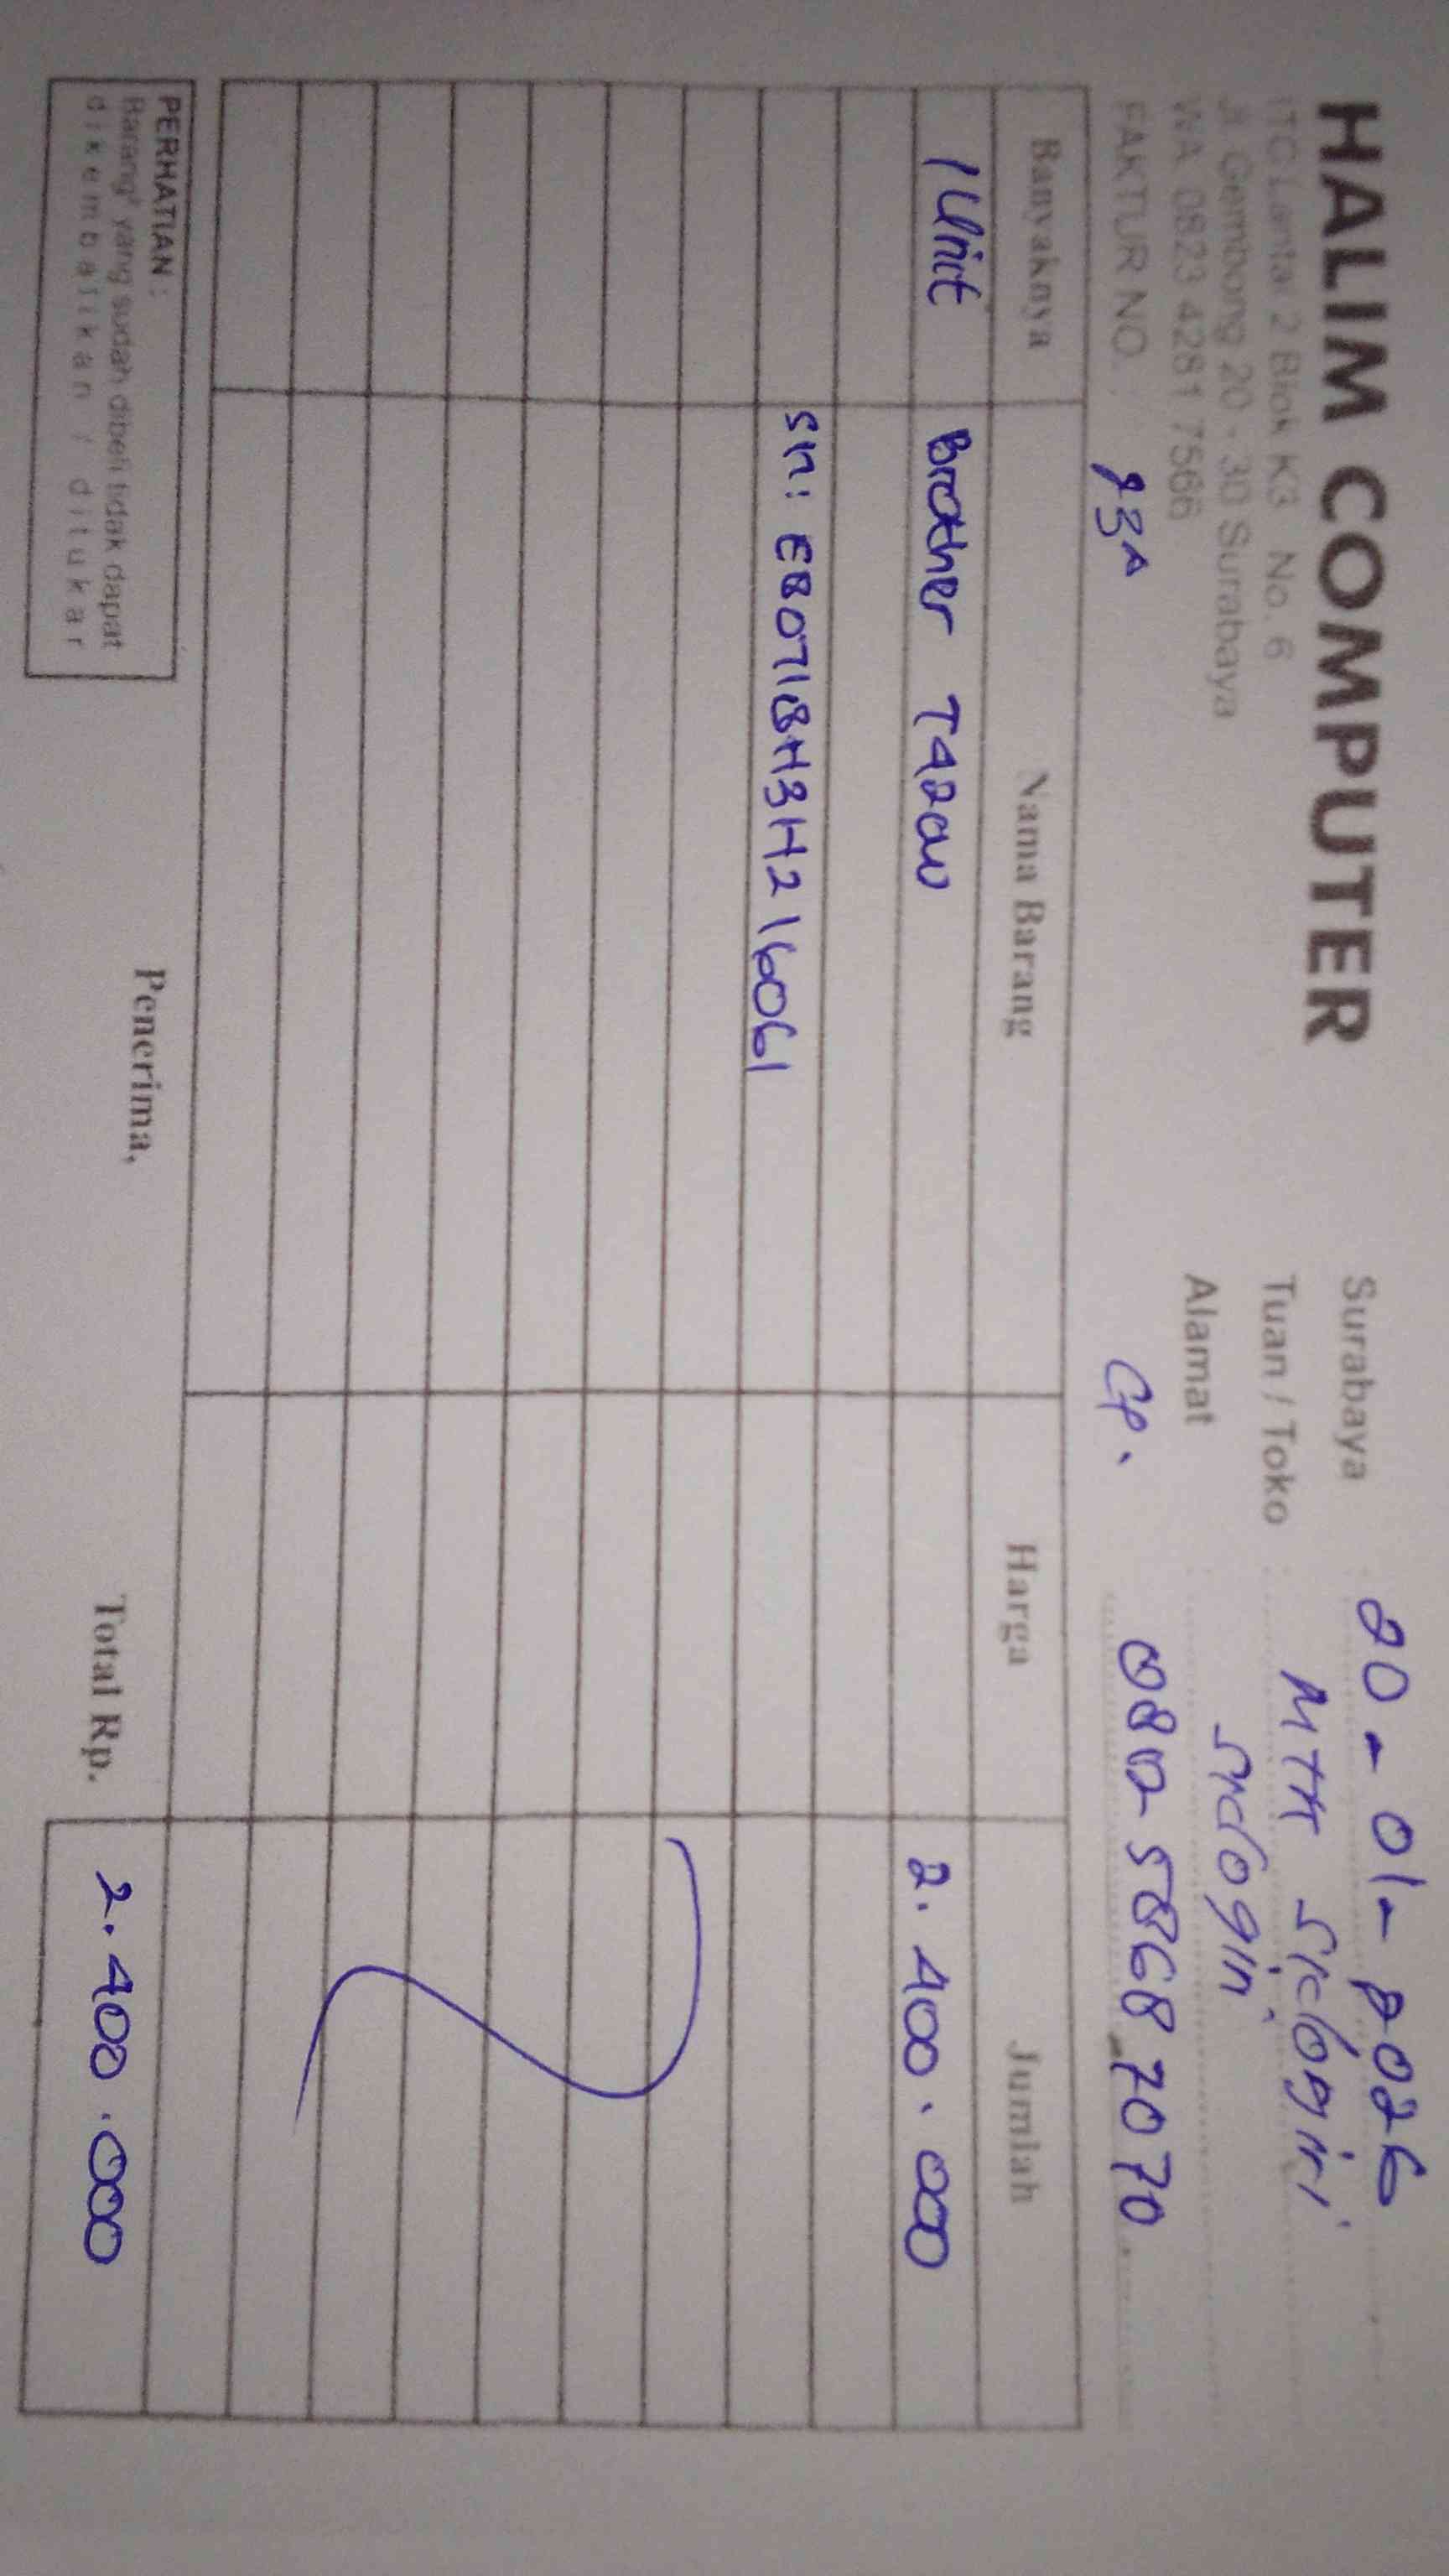 HALIM COMPUTER
ITC Lantai 2 Blok K3 No. 6
Jl. Gembong 20 - 30 Surabaya
WA. 0823 4281 7566
FAKTUR NO. :
Surabaya : 20-01-2026
Tuan / Toko : MTH Sidogiri
Alamat : Sidogiri
CP. 0812-5868 7070
Banyaknya Nama Barang Harga Jumlah
1 Unit Brother T420W 2.400.000
SN: E80718H3H216061
PERHATIAN :
Barang² yang sudah dibeli tidak dapat
dikembalikan / ditukar
Penerima,
Total Rp. 2.400.000